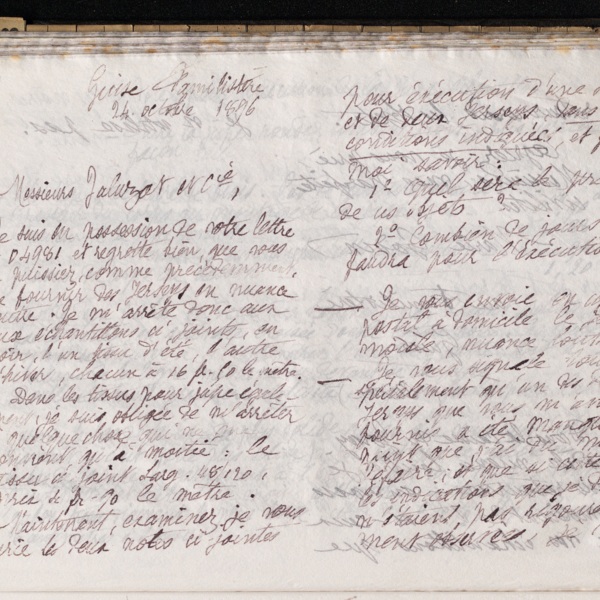 Guise Familistère
24 octobre 1886
Messieurs Jaluzot et Cie,
e suis en possession de votre lettre
04981 et regrette bien que vous
puissiez, comme précédemment,
e fournir des Jerseys en nuance
Je m'arrête donc aux
échantillons ci joints, en
oir, l'un pour d'été, l'autre
d'hiver, chacun à 16 fr. 50 le mètre.
Dans les tissus pour jupe égale
ment, je suis obligée de m'arrêter
quelque chose qui ne
qu'à moitié : le
ci joint larg. 48/120,
4 fr-90 le mètre.
Maintenant, examinez, je vous
prie les deux notes ci jointes
pour exécution d'une
et de deux Jerseys dans
conditions indiquées, et
moi savoir :
1º quel sera le pr
de ces objets ?
2º Combien de jours
faudra pour l'exécution
— Je vous envoie en
postal à domicile
modèle, nuance
— Je vous signale
spécialement qu'un des
Jerseys que vous m'a
fournis a été manqué
que j'ai dû
refaire, et que si cette
les indications que je
n'étaient pas rigoureu
ment observées